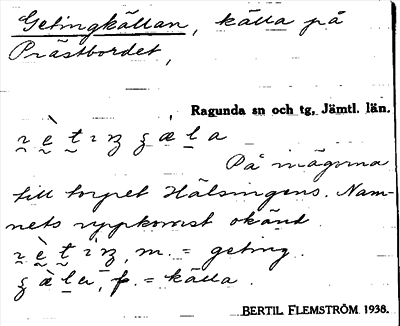 Getingkällan, källa på
Prästbordet,
Ragunda sn och tg, Jämtl. län.
På inägorna
till torpet Hälsingens. Nam-
nets uppkomst okänd.
m. = geting.
f. = källa.
BERTIL FLEMSTRÖM 1938.